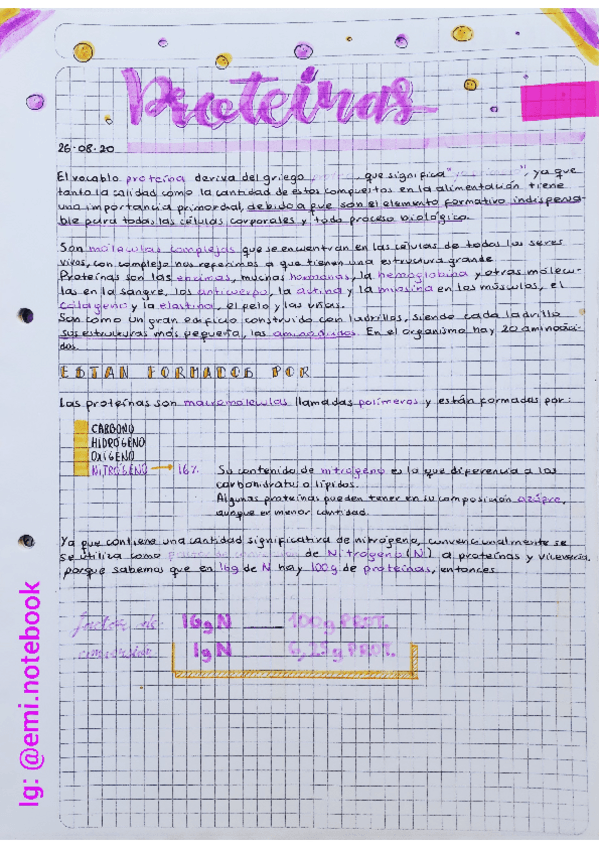 Proteínas
26·08·20
El vocablo proteína deriva del griego que significa " ", ya que
tanto la calidad como la cantidad de estos compuestos en la alimentación tiene
una importancia primordial, debido a que son el elemento formativo indispensa-
ble para todas las células corporales y todo proceso biológico.
Son moléculas complejas que se encuentran en las células de todos los seres
vivos, con complejo nos referimos a que tienen una estructura grande
Proteínas son las enzimas, muchas hormonas, la hemoglobina y otras molécu-
las en la sangre, los anticuerpo, la actina y la miosina en los músculos, el
colágeno y la elastina, el pelo y las uñas.
Son como un gran edificio construido con ladrillos, siendo cada ladrillo
sus estructuras más pequeña, las aminoácidos. En el organismo hay 20 aminoáci-
dos.
ESTAN FORMADOS POR
Las proteínas son macromoleculas llamadas polímeros y están formadas por:
CARBONO
HIDRÓGENO
OXÍGENO
NITRÓGENO → 16% Su contenido de nitrógeno es lo que diferencia a los
carbohidratos o lípidos.
Algunas proteínas pueden tener en su composición azúfre,
aunque en menor cantidad.
Ya que contiene una cantidad significativa de nitrógeno, convencionalmente se
se utiliza como de Nitrogeno (N) a proteínas y viceversa.
porque sabemos que en 16g de N hay 100g de proteínas, entonces
factor de 16g N ____ 100g PROT.
conversión 1g N 6,25g PROT.
Ig: @emi.notebook